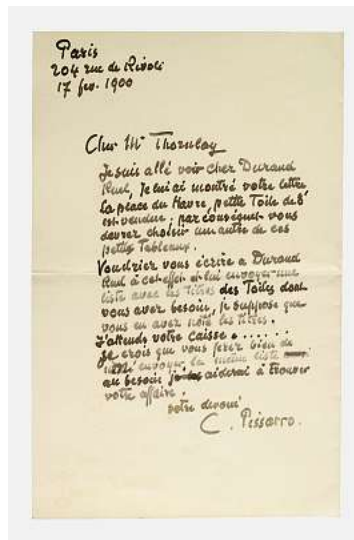 Paris
204 rue de Rivoli
17 fev. 1900
Cher Mr Thornley
Je suis allé voir chez Durand
Ruel, Je lui ai montré votre lettre
La place du Havre, petite Toile de 8
est vendue ; par conséquent vous
devrez choisir un autre de ces
petits Tableaux.
Voudriez vous écrire a Durand
Ruel à cet effet et lui envoyer une
liste avec les titres des Toiles dont
vous avez besoin, je suppose que
vous en avez noté les titres.
J'attends votre caisse . . . . . . .
Je crois que vous ferez bien de
m'envoyer la même liste
au besoin je aiderai à trouver
votre affaire.
votre devoué
C. Pissarro.